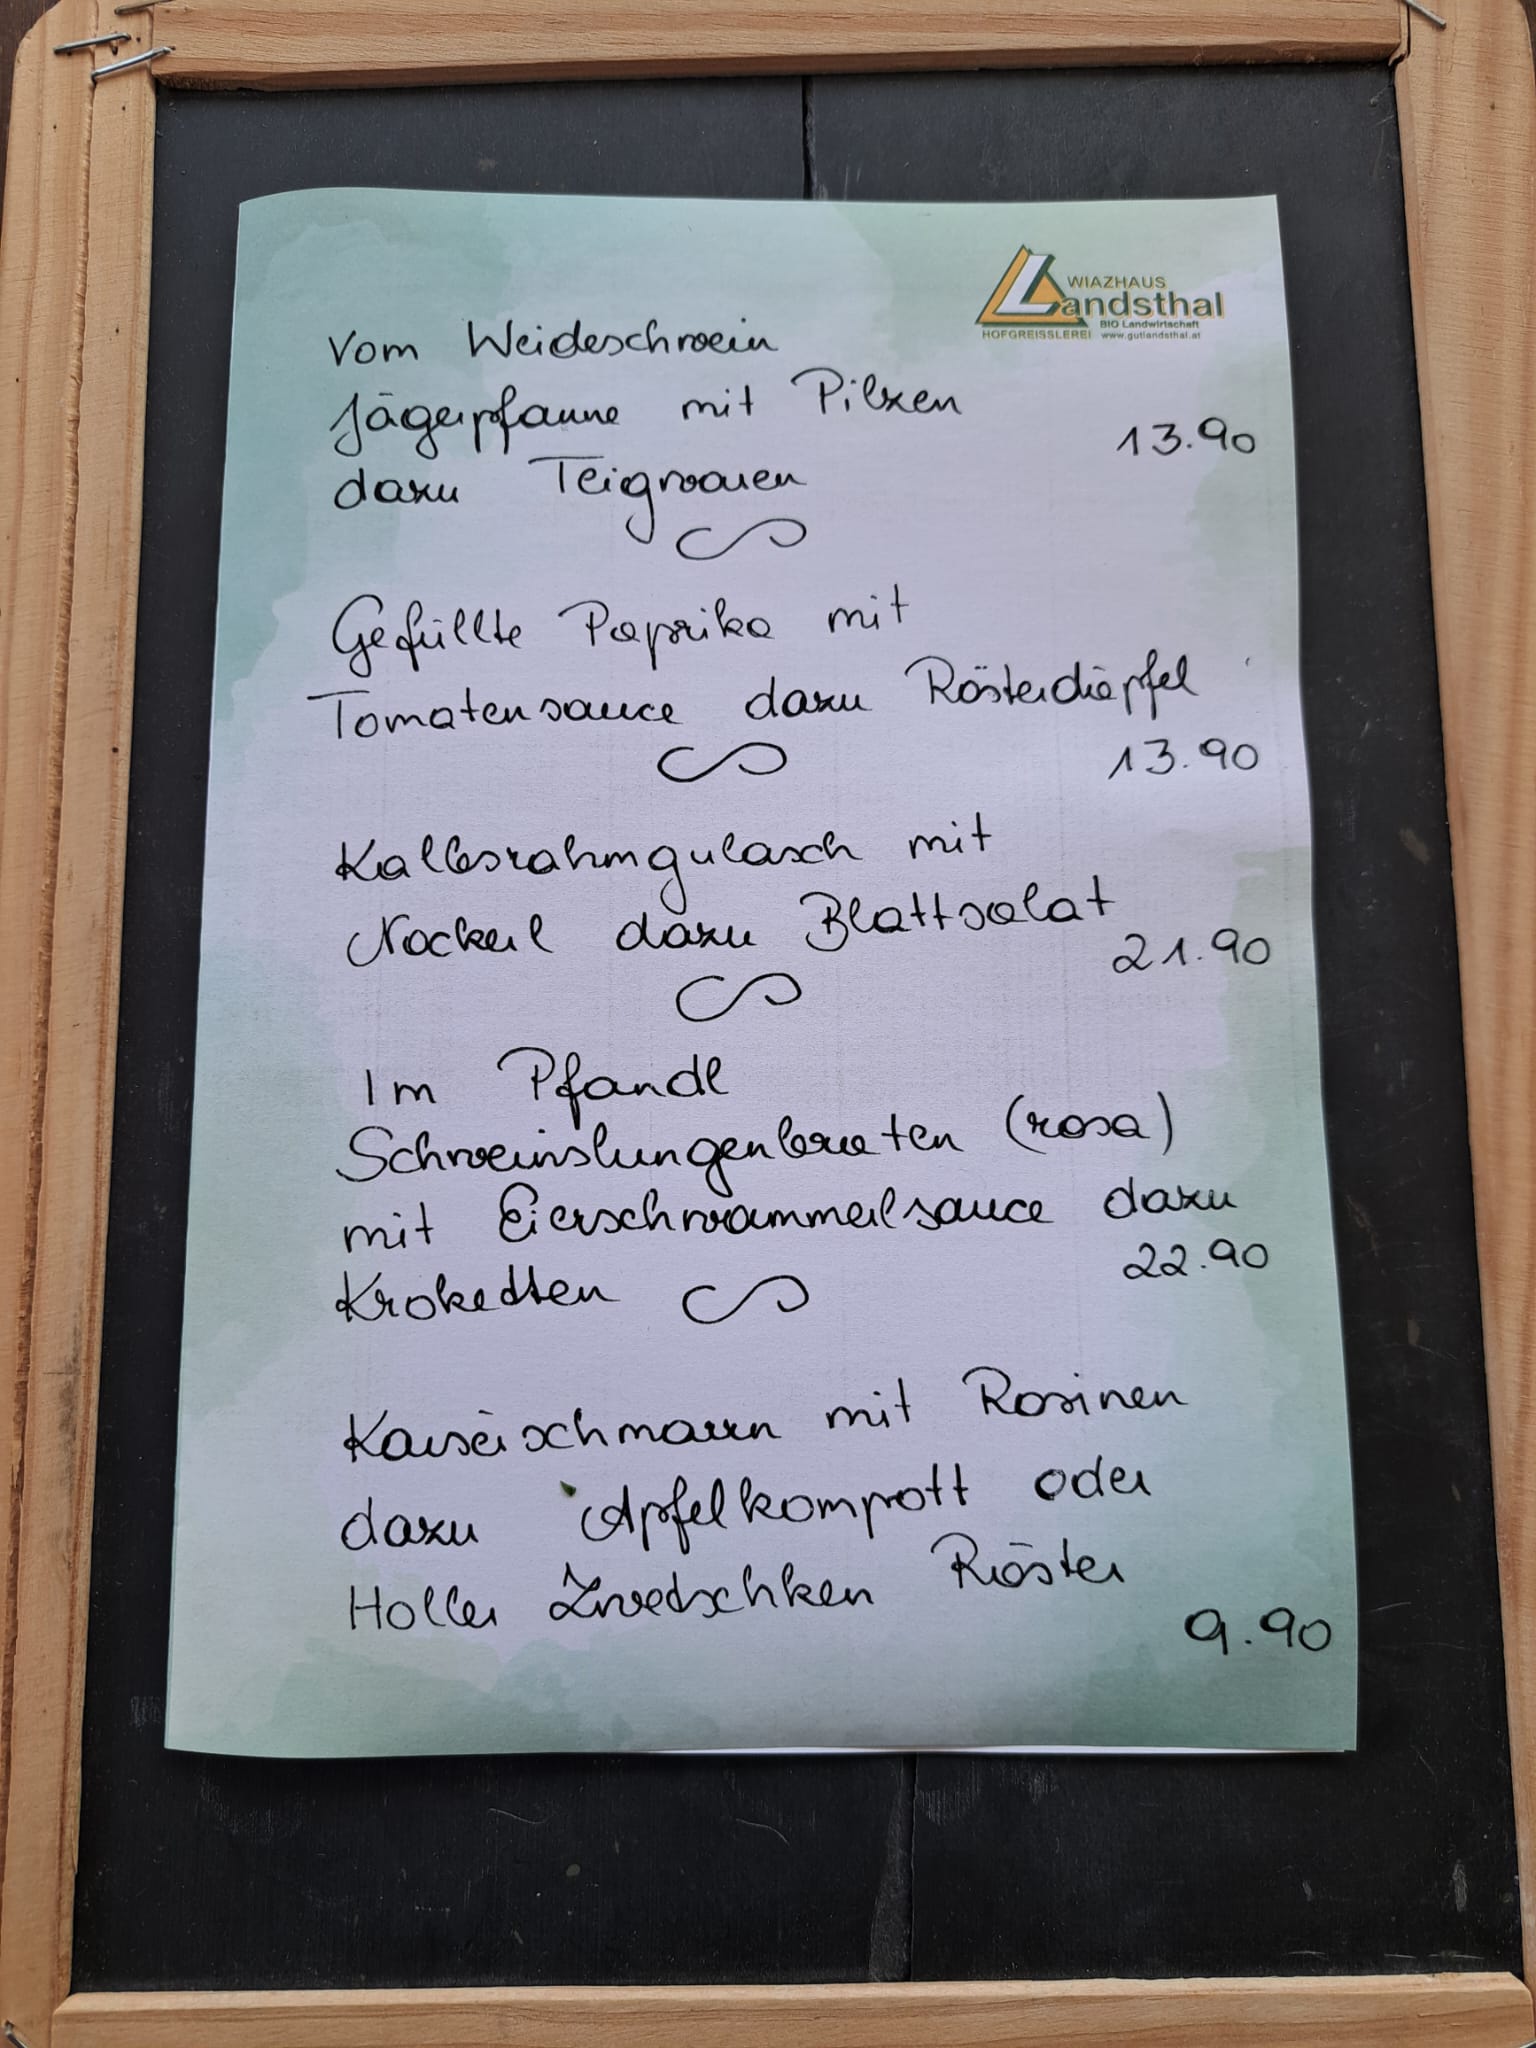 WIAZHAUS
Landsthal
BIO Landwirtschaft
HOFGREISSLEREI www.gutlandsthal.at
Vom Weideschwein
Jägerpfanne mit Pilzen
13.90
dazu Teigwaren
Gefüllte Paprika mit
Tomatensauce dazu Rösterdäpfel
13.90
Kalbsrahmgulasch mit
Nockerl dazu Blattsalat
21.90
Im Pfandl
Schweinslungenbraten (rosa)
mit Eierschwammerlsauce dazu
22.90
Kroketten
Kaiserschmarrn mit Rosinen
dazu Apfelkompott oder
Holler Zwetschken Röster
9.90